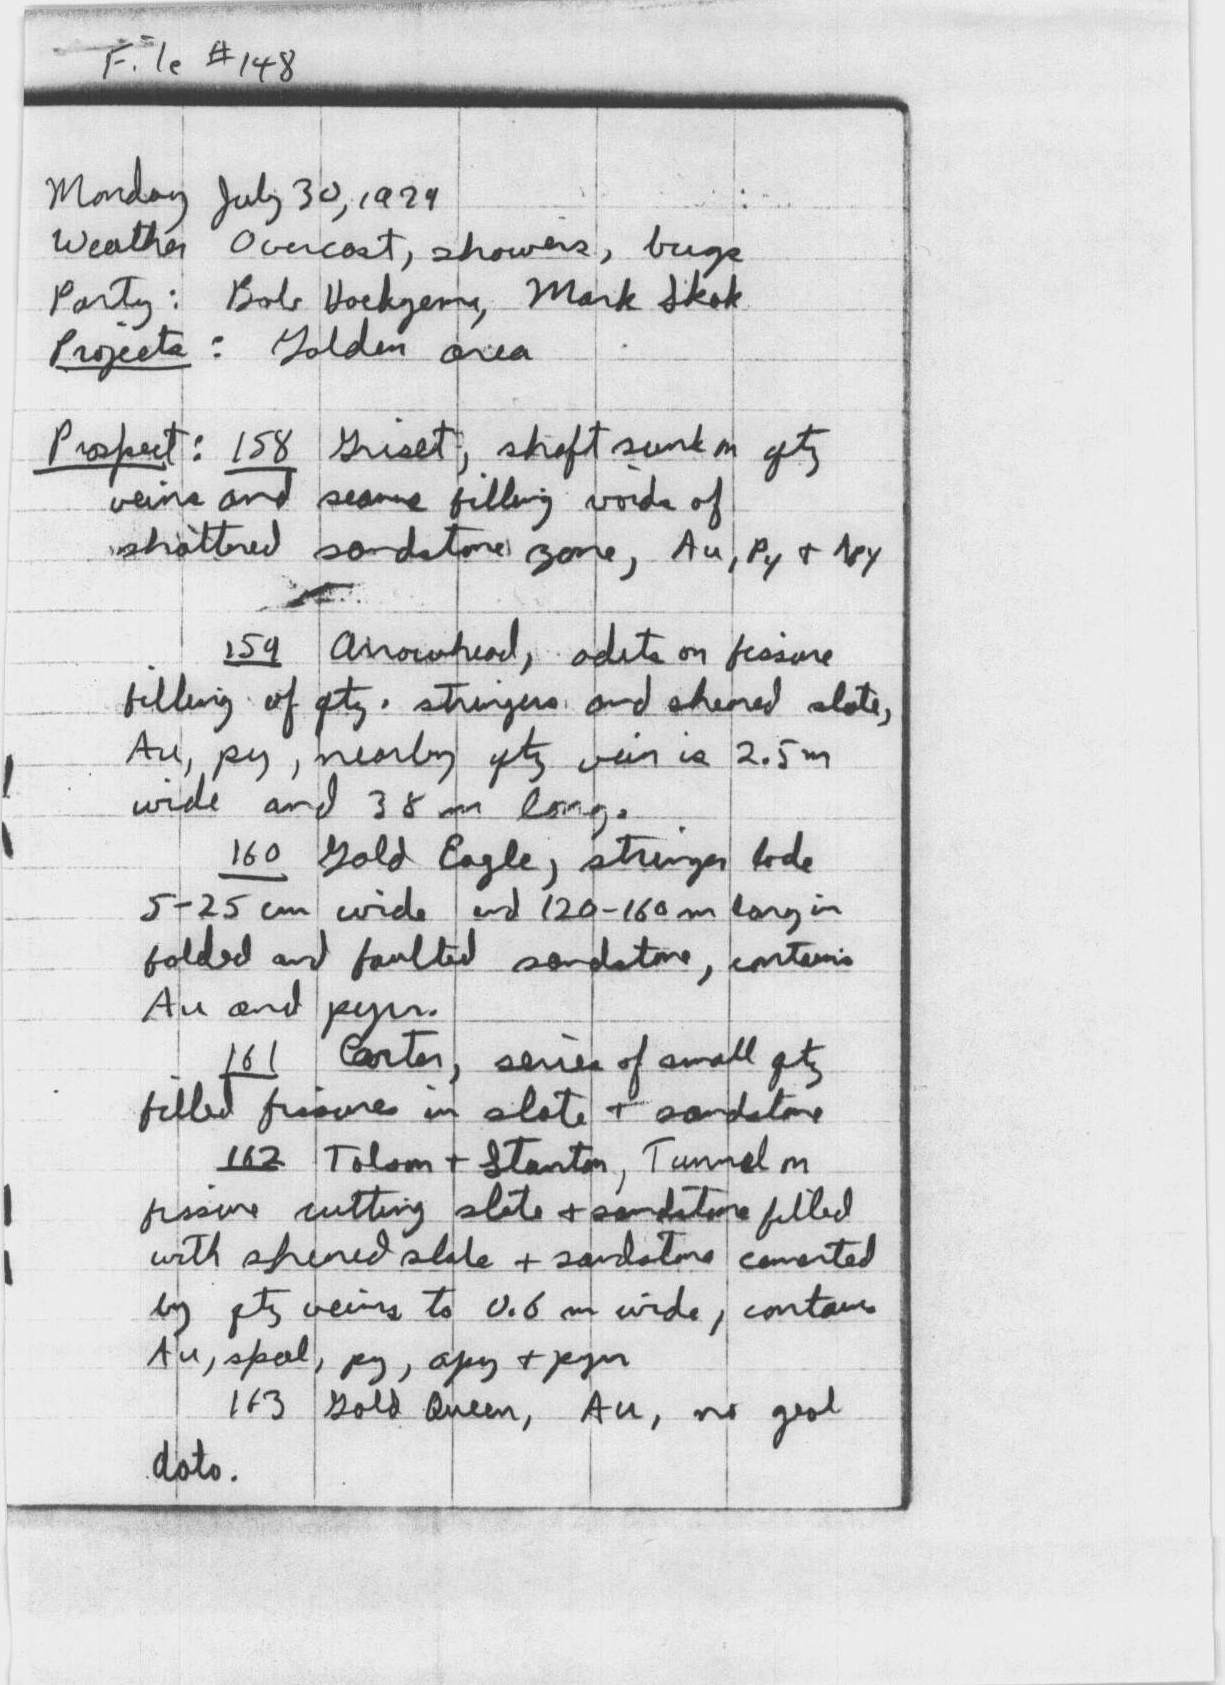 File #148
Monday July 30, 1979
Weather Overcast, showers, bugs
Party: Bob Hoekzema, Mark Skok
Projects: Golden area
Prospect: 158 Griset, shaft sunk on qtz
veins and seams filling voids of
shattered sandstone zone, Au, Py + Apy
159 Arrowhead, adits on fissure
filling of qtz. stringers and sheared slate,
Au, py, nearby qtz vein is 2.5 m
wide and 38 m long.
160 Gold Eagle, stringer lode
5-25 cm wide and 120-160 m long in
folded and faulted sandstone, contains
Au and pyrr.
161 Carter, series of small qtz
filled fissures in slate + sandstone
162 Tolson + Stanton, Tunnel on
fissure cutting slate + sandstone filled
with sheared slate + sandstone cemented
by qtz veins to 0.6 m wide, contains
Au, spal, py, apy + pyrr
163 Gold Queen, Au, no geol
data.